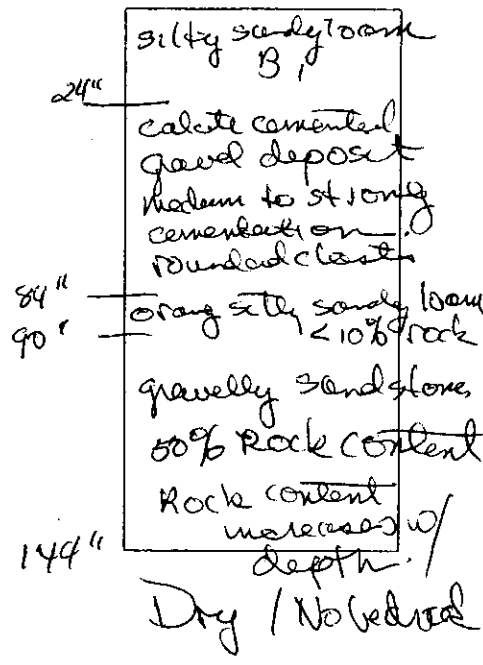 silty sandy loam
B1
24"
calcite cemented
gravel deposit
medium to strong
cementation.
rounded clasts
84"
orang silty sandy loam
90"
<10% rock
gravelly sandstone
50% Rock content
Rock content
increases w/
144"
depth.
Dry / No bedrock